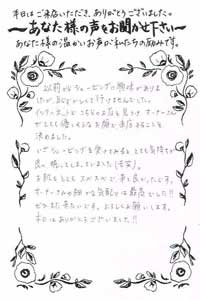 本日はご来店いただき、ありがとうございました。
～あなた様の声をお聞かせ下さい～
あなた様の温かいお声が私たちの励みです。
以前からシェービングに興味がありま
したが、なかなかできませんでした。
インターネットでこちらのお店を見つけ、オーナーさん
がとても優しそうなお顔で来店することを
決めました。
いざシェービングを受けてみるととても気持ち
良く、眠ってしまっていました(苦笑)。
お肌もとてもスベスベで来て良かったです。
オーナーさんの細かな気配りは最高でした!!
ぜひまた来たいです。よろしくお願いします。
本日はありがとうございました!!